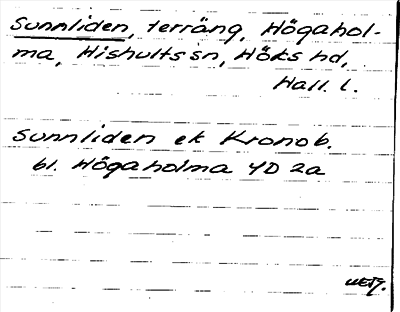 Sunnliden, terräng, Högahol-
ma, Hishults sn, Höks hd,
Hall. l.
Sunnliden ek Kronob.
bl. Högaholma 4D 2a